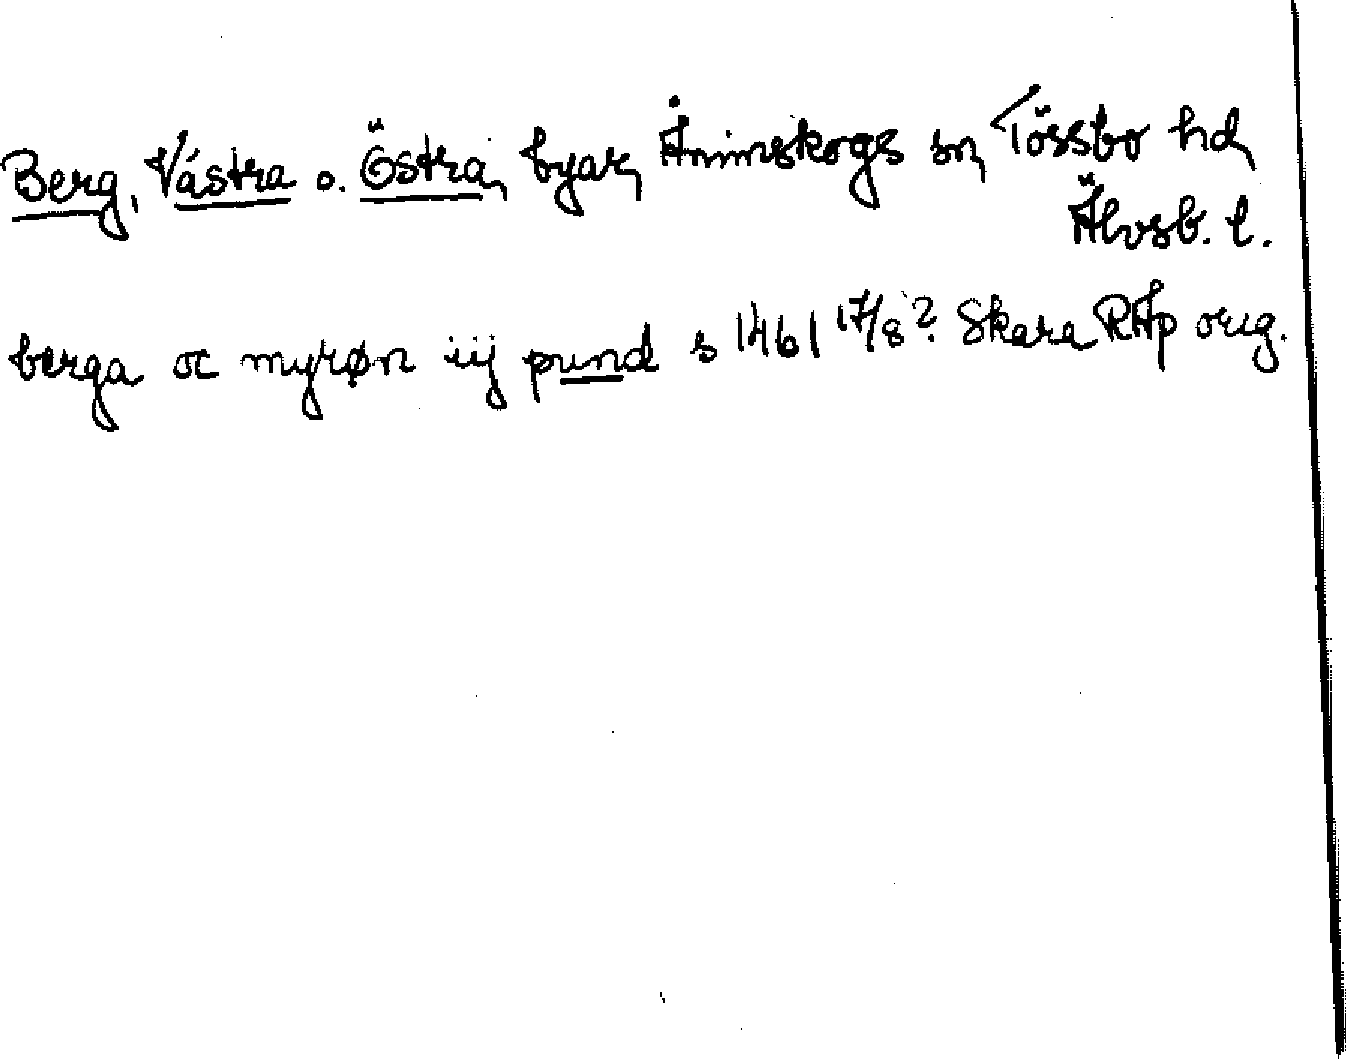 Berg, Västra o. Östra, byar, Ånimskogs sn, Tössbo hd,
Älvsb. l.
berga oc myrøn iij pund s 1461 17/8? Skara RAp orig.